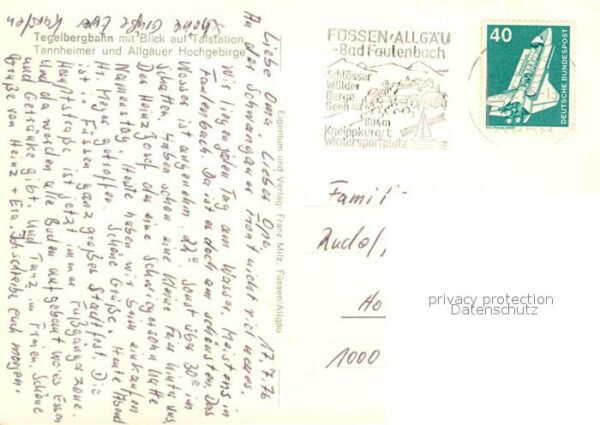 Schöne Grüße Euer Karsten
Tegelbergbahn mit Blick auf Talstation
Tannheimer und Allgäuer Hochgebirge
17.7.76
Liebe Oma, Lieber Opa,
An der Schwangauer Front nicht viel neues.
Wir liegen jeden Tag am Wasser. Meistens in
Faulenbach. Da ist es doch am schönsten. Das
Wasser ist angenehm. 22°. Sonst über 30° im
Schatten. Haben schon eine kleine Tour hinter uns.
Der Heinz Josef der eine Schwiegersohn hatte
Namenstag. Heute haben wir beim einkaufen
Hr. Meyer getroffen. Schöne Grüße. Heute Abend
ist in Füssen ganz großes Stadtfest. Die
Hauptstraße ist jetzt immer Fußgängerzone.
Und da werden alle Buden aufgebaut wo es Essen
und Getränke gibt. Und Tanz im Freien. Schöne
Grüße von Heinz + Eva. Ich schreibe euch morgen.
Eigentum und Verlag: Franz Milz, Füssen/Allgäu
FÜSSEN·ALLGÄU
-Bad Faulenbach
Schlösser
Wälder
Berge
Seen
804m
Kneippkurort
Wintersportplatz
40
DEUTSCHE BUNDESPOST
WELTRAUMLABOR
Famili
Rudolf
Ho
1000
privacy protection
Datenschutz